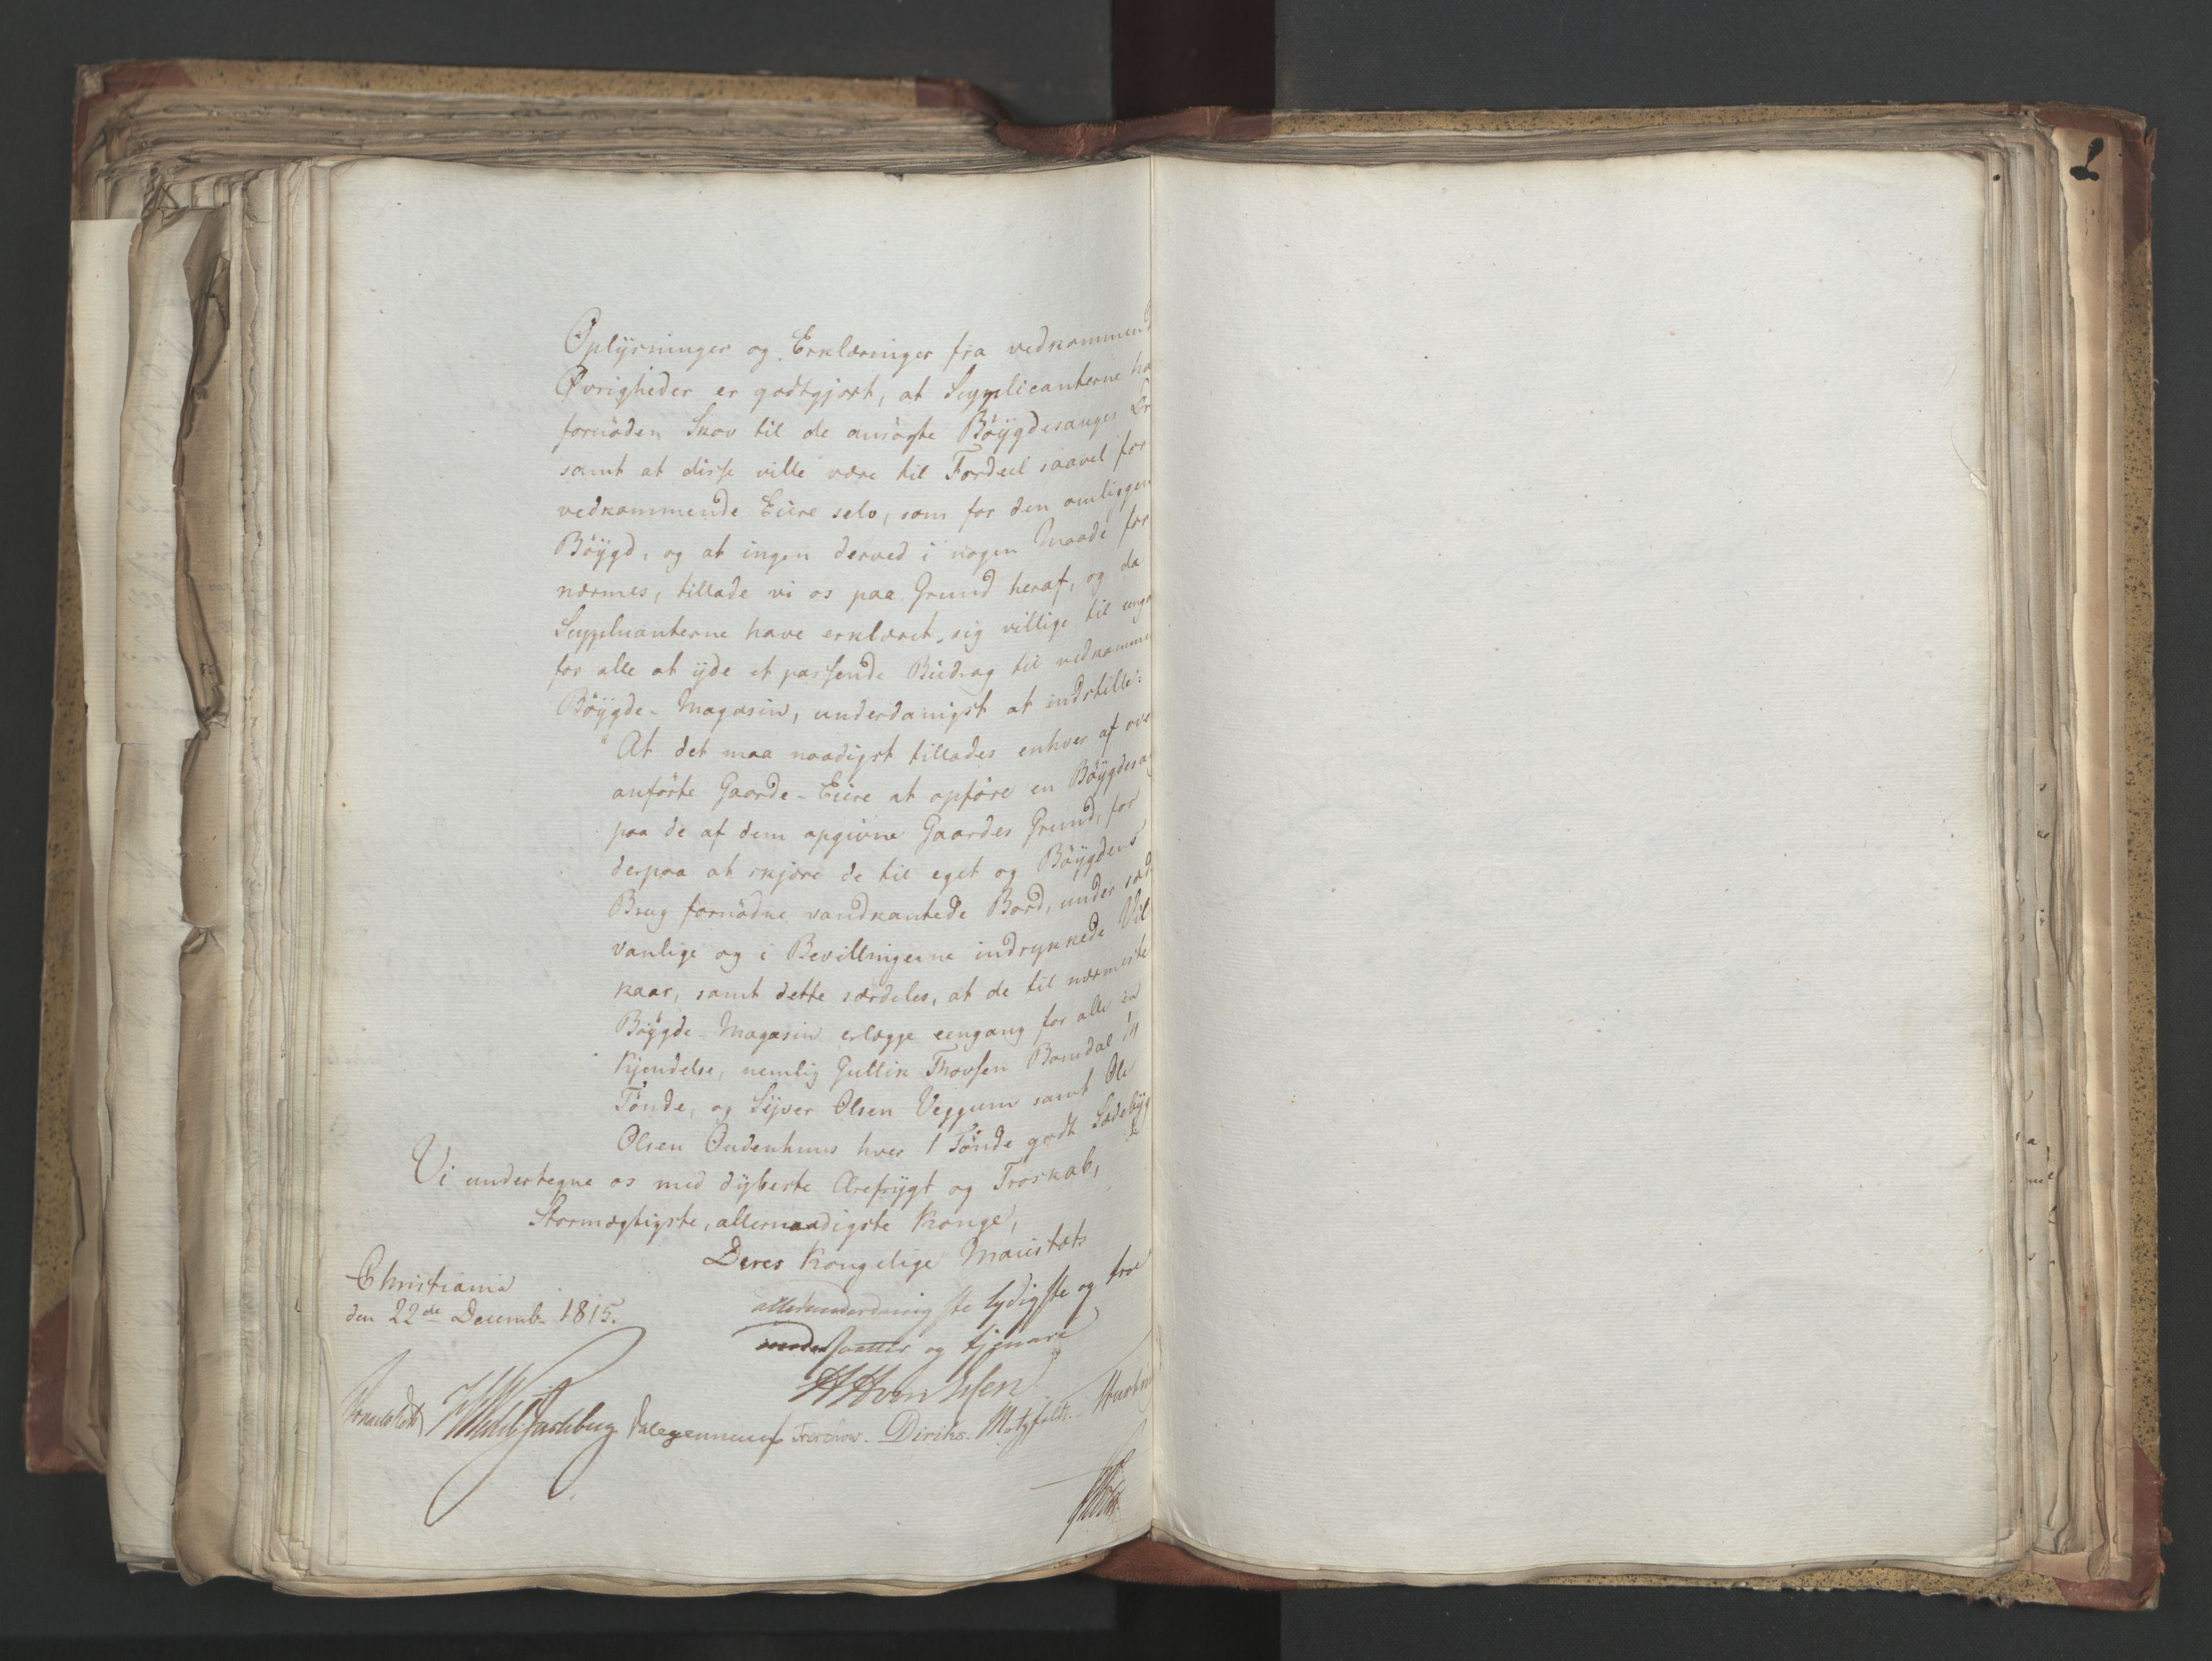 Oplÿsninger og Erklæringer fra vedkommend
Øvrigheder er godtgjort, at Supplicanterne ha
fornöden Skov til de ansögte Böÿgdesauges Dr
samt at disse ville være til Fordeel saavel for
vedkommende Eiere selv, som for den omliggen
Böÿgd, og at ingen derved i nogen Maade for
nærmes, tillade vi os paa Grund heraf, og da
Supplicanterne have erklæret sig villige til engan
for alle at ÿde et passende Bidrag til vedkomme
Böÿgde-Magasin, underdanigst at indstille:
"At det maa naadigst tillades enhver af ove
anförte Gaarde-Eiere at opföre en Böÿgdesa
paa de af dem opgivne Gaardes Grund, for
derpaa at skjære de til eget og Böÿgdens
Brug fornödne vandkantede Bord, under sæd
vanlige og i Bevillingerne indrykkede Vil
kaar, samt dette særdeles, at de til nærmeste
Böÿgde-Magasin erlægge eengang for alle en
Kjendelse, nemlig Gullik Thovsen Bomdal 1/4
Tönde, og Sÿver Olsen Veggum samt Ole
Olsen hver 1 Tönde godt Sædebÿg
Vi undertegne os med dÿbeste Ærefrÿgt og Troskab,
Stormægtigste, allernaadigste Konge,
Deres Kongelige Maiestæts
Christiania
den 22de Decemb. 1815.
allerunderdanigste lydigste og troe
undersaatter og tjenere
Wedel Jarlsberg Treschow. Diriks. Motzfeldt.